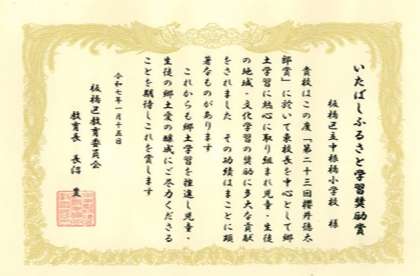 いたばしふるさと学習奨励賞
板橋区立中根橋小学校 様
貴校はこの度「第二十三回櫻井德太
郎賞」に於いて東校長を中心として郷
土学習に熱心に取り組まれ児童・生徒
の地域・文化学習の奨励に多大な貢献
をされました その功績はまことに顕
著なものがあります
これからも郷土学習を推進し児童・
生徒の郷土愛の醸成にご尽力くださる
ことを期待しこれを賞します
令和七年一月十五日
板橋区教育委員会
教育長 長沼 豊